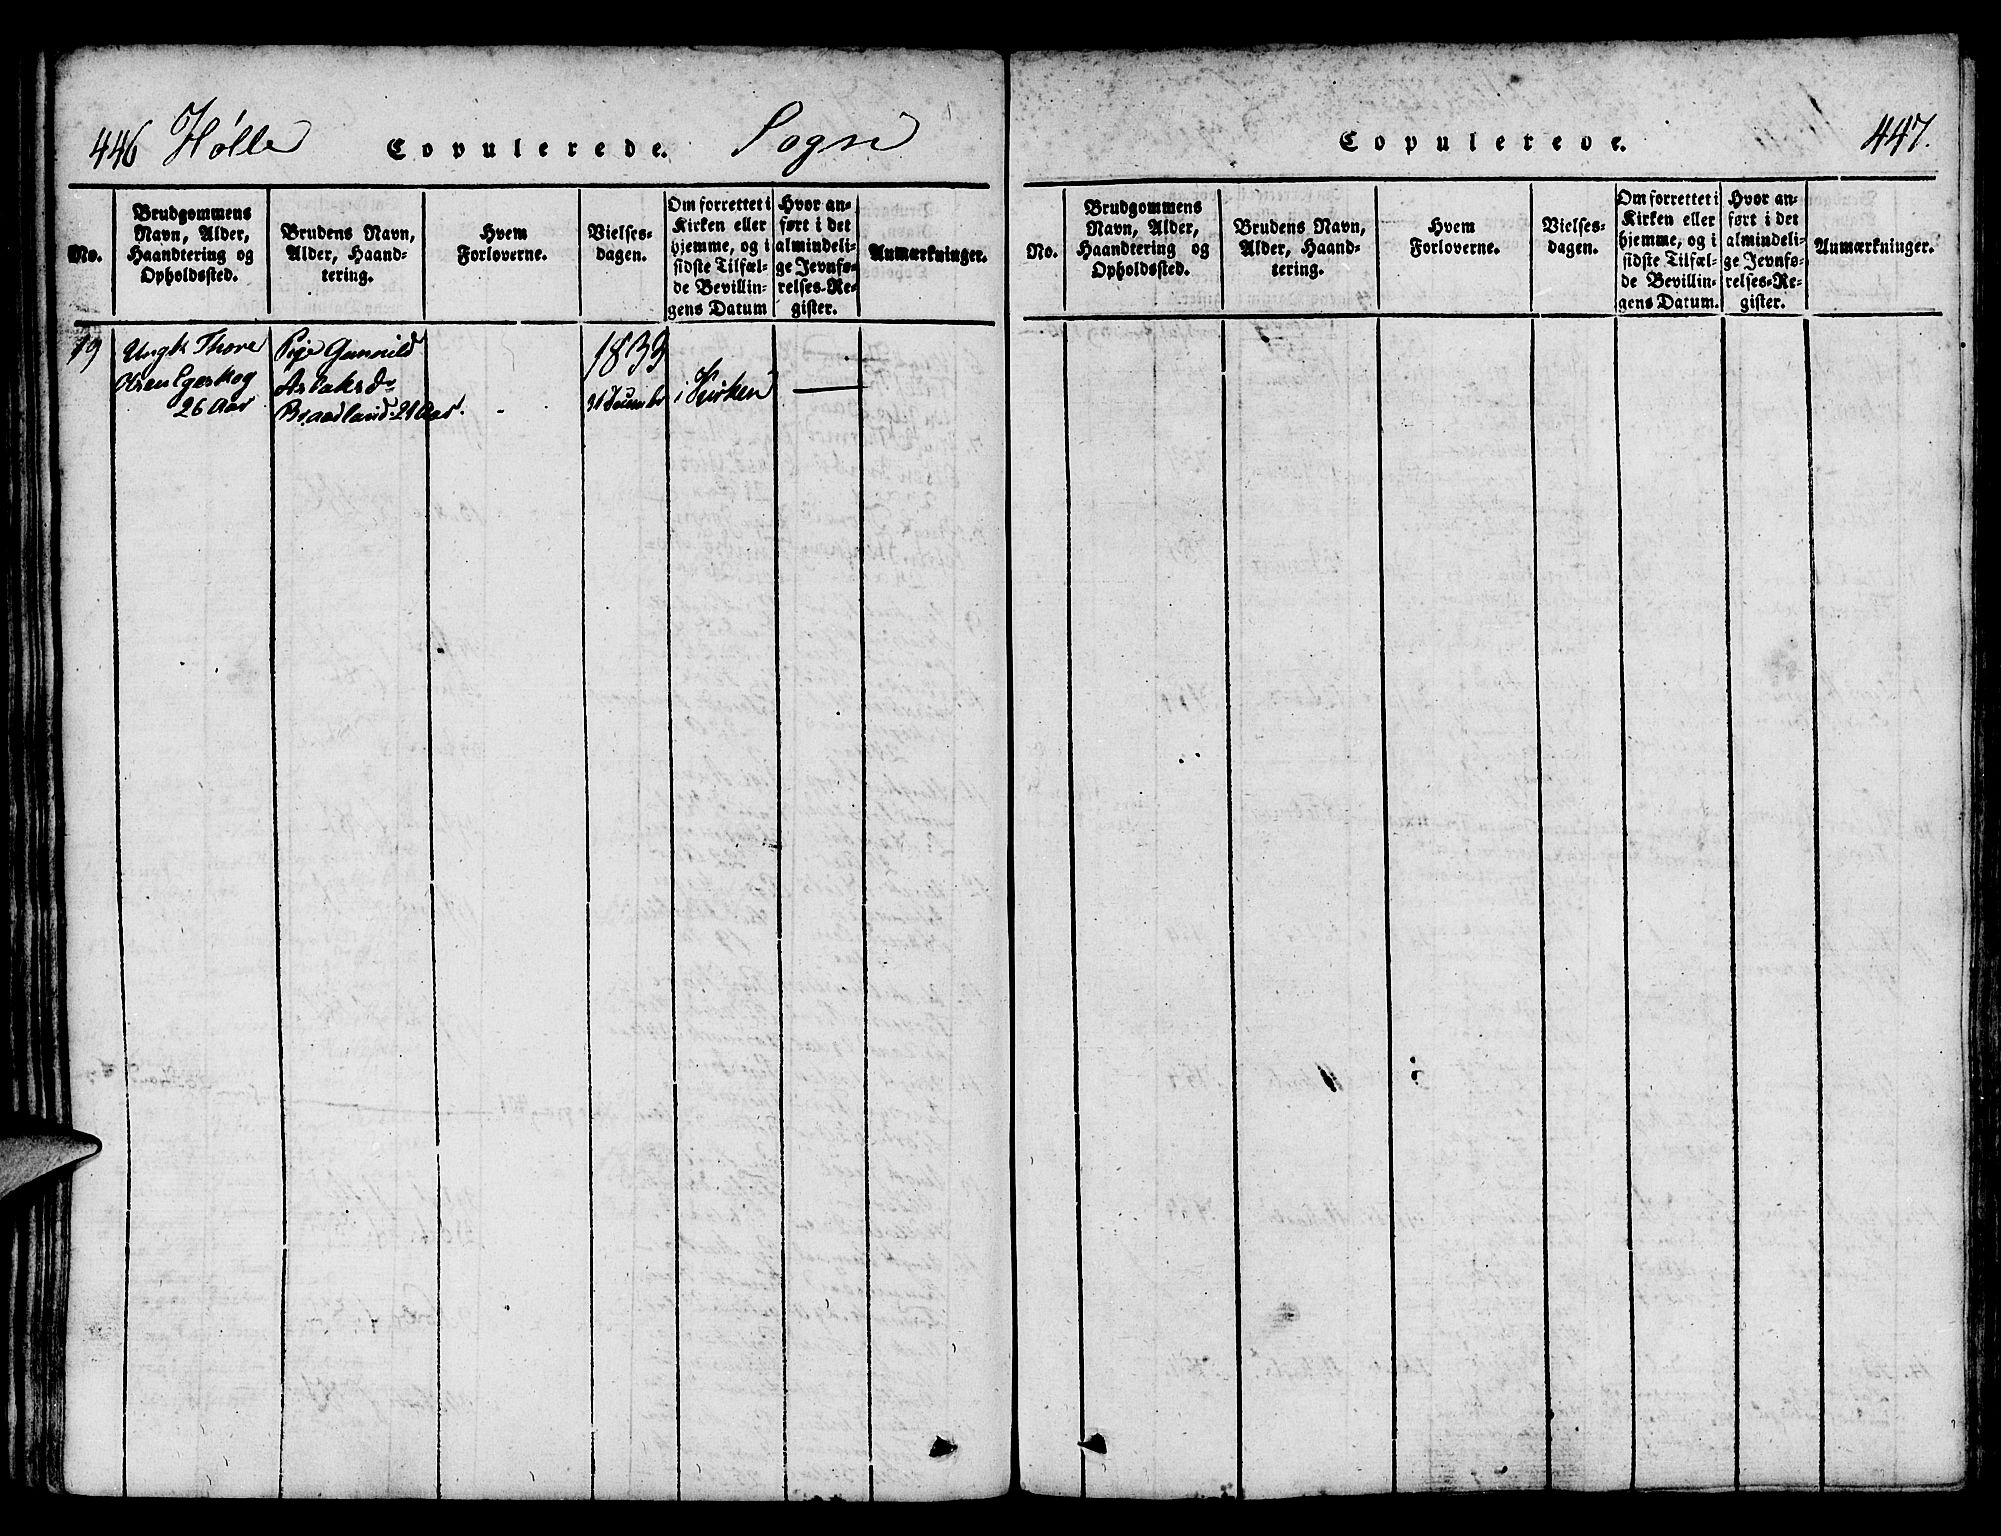 446 Hölle Copulerede. Sogn
No.
Brudgommens
Navn, Alder,
Haandtering og
Opholdssted.
Brudens Navn,
Alder, Haand-
tering.
Hvem
Forloverne.
Vielses-
dagen.
Om forrettet i
Kirken eller
hjemme, og i
sidste Tilfæl-
de Bevillin-
gens Datum
Hvor an-
ført i det
almindeli-
ge Jevnfø-
relses-Re-
gister.
Anmærkninger.
19
Ungk Thore
Olsen Egeskog
26 Aar
Pige Gunnild
Aslaksd
Braadland 21 Aar.
1833
31 Decembr
i Kirken
Copulerede. 447.
No.
Brudgommens
Navn, Alder,
Haandtering og
Opholdssted.
Brudens Navn,
Alder, Haand-
tering.
Hvem
Forloverne.
Vielses-
dagen.
Om forrettet i
Kirken eller
hjemme, og i
sidste Tilfæl-
de Bevillin-
gens Datum.
Hvor an-
ført i det
almindeli-
ge Jevnfø-
relses-Re-
gister.
Anmærkninger.